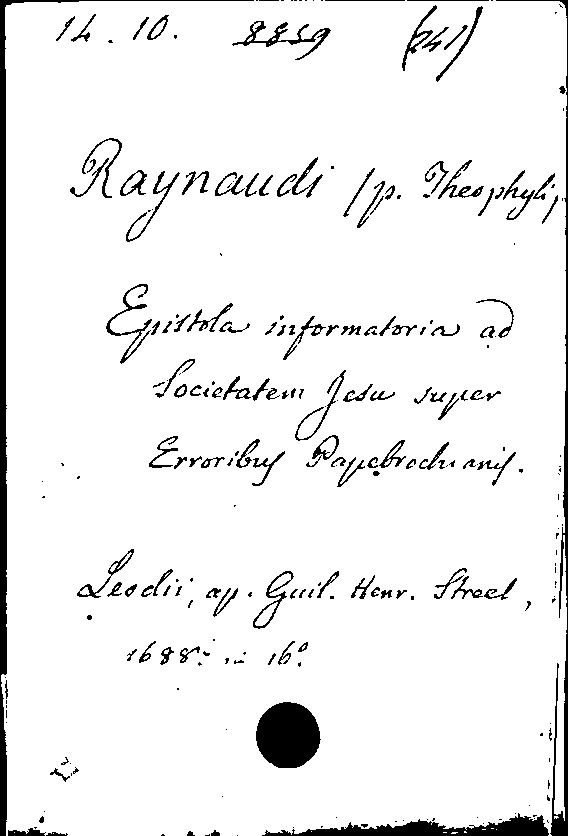 14. 10. 8859 (241)
Raynaudi /p. Theophyli,
Epistola informatoria ad
Societatem Jesu super
Erroribus Papebrochianis.
Leodii, ap. Guil. Henr. Streel,
1688. in 16º.